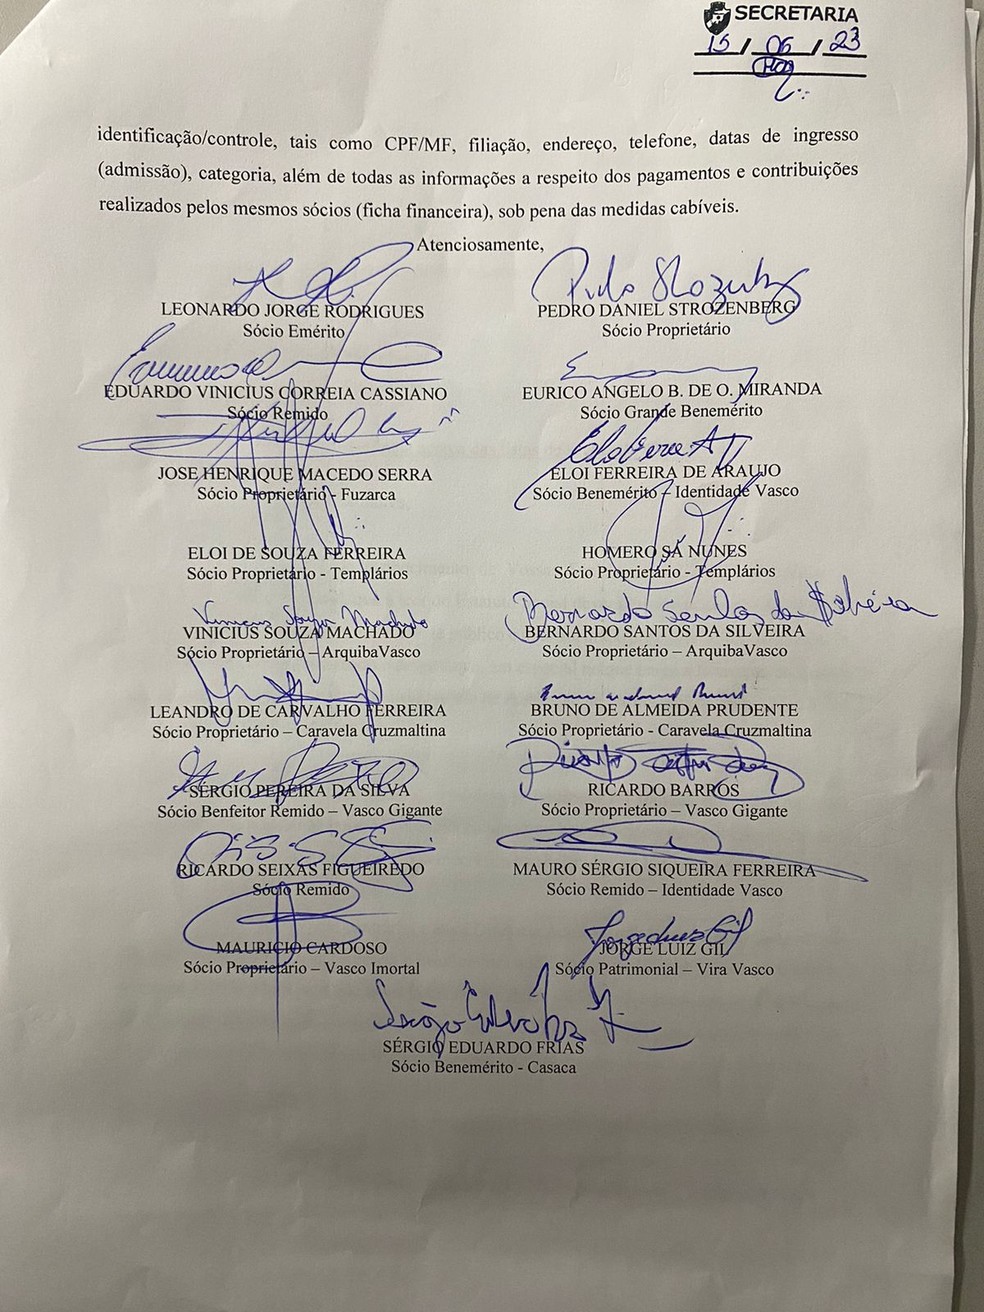 SECRETARIA
15 / 06 / 23
identificação/controle, tais como CPF/MF, filiação, endereço, telefone, datas de ingresso
(admissão), categoria, além de todas as informações a respeito dos pagamentos e contribuições
realizados pelos mesmos sócios (ficha financeira), sob pena das medidas cabíveis.
Atenciosamente,
LEONARDO JORGE RODRIGUES
Sócio Emérito
PEDRO DANIEL STROZENBERG
Sócio Proprietário
EDUARDO VINICIUS CORREIA CASSIANO
Sócio Remido
EURICO ANGELO B. DE O. MIRANDA
Sócio Grande Benemérito
JOSE HENRIQUE MACEDO SERRA
Sócio Proprietário - Fuzarca
ELOI FERREIRA DE ARAUJO
Sócio Benemérito – Identidade Vasco
ELOI DE SOUZA FERREIRA
Sócio Proprietário - Templários
HOMERO SÁ NUNES
Sócio Proprietário - Templários
Vinicius Souza Machado
VINICIUS SOUZA MACHADO
Sócio Proprietário – ArquibaVasco
Bernardo Santos da Silveira
BERNARDO SANTOS DA SILVEIRA
Sócio Proprietário – ArquibaVasco
LEANDRO DE CARVALHO FERREIRA
Sócio Proprietário – Caravela Cruzmaltina
BRUNO DE ALMEIDA PRUDENTE
Sócio Proprietário - Caravela Cruzmaltina
SÉRGIO PEREIRA DA SILVA
Sócio Benfeitor Remido – Vasco Gigante
RICARDO BARROS
Sócio Proprietário – Vasco Gigante
RICARDO SEIXAS FIGUEIREDO
Sócio Remido
MAURO SÉRGIO SIQUEIRA FERREIRA
Sócio Remido – Identidade Vasco
MAURICIO CARDOSO
Sócio Proprietário – Vasco Imortal
JORGE LUIZ GIL
Sócio Patrimonial – Vira Vasco
SÉRGIO EDUARDO FRIAS
Sócio Benemérito - Casaca